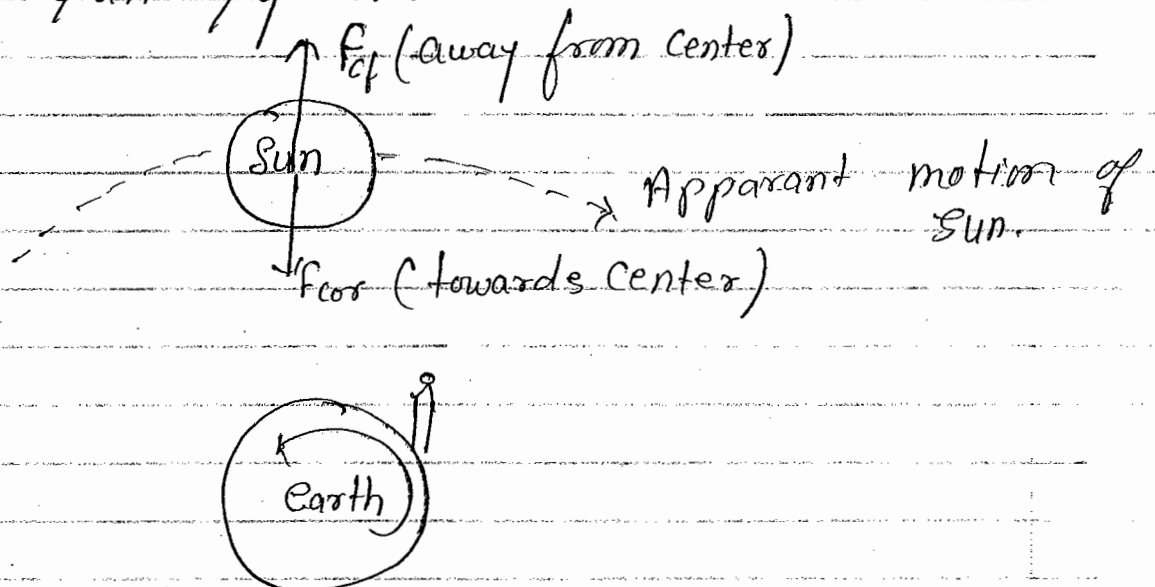 Fcf (away from center)
Sun
Apparant motion of
Sun.
Fcor (towards center)
earth